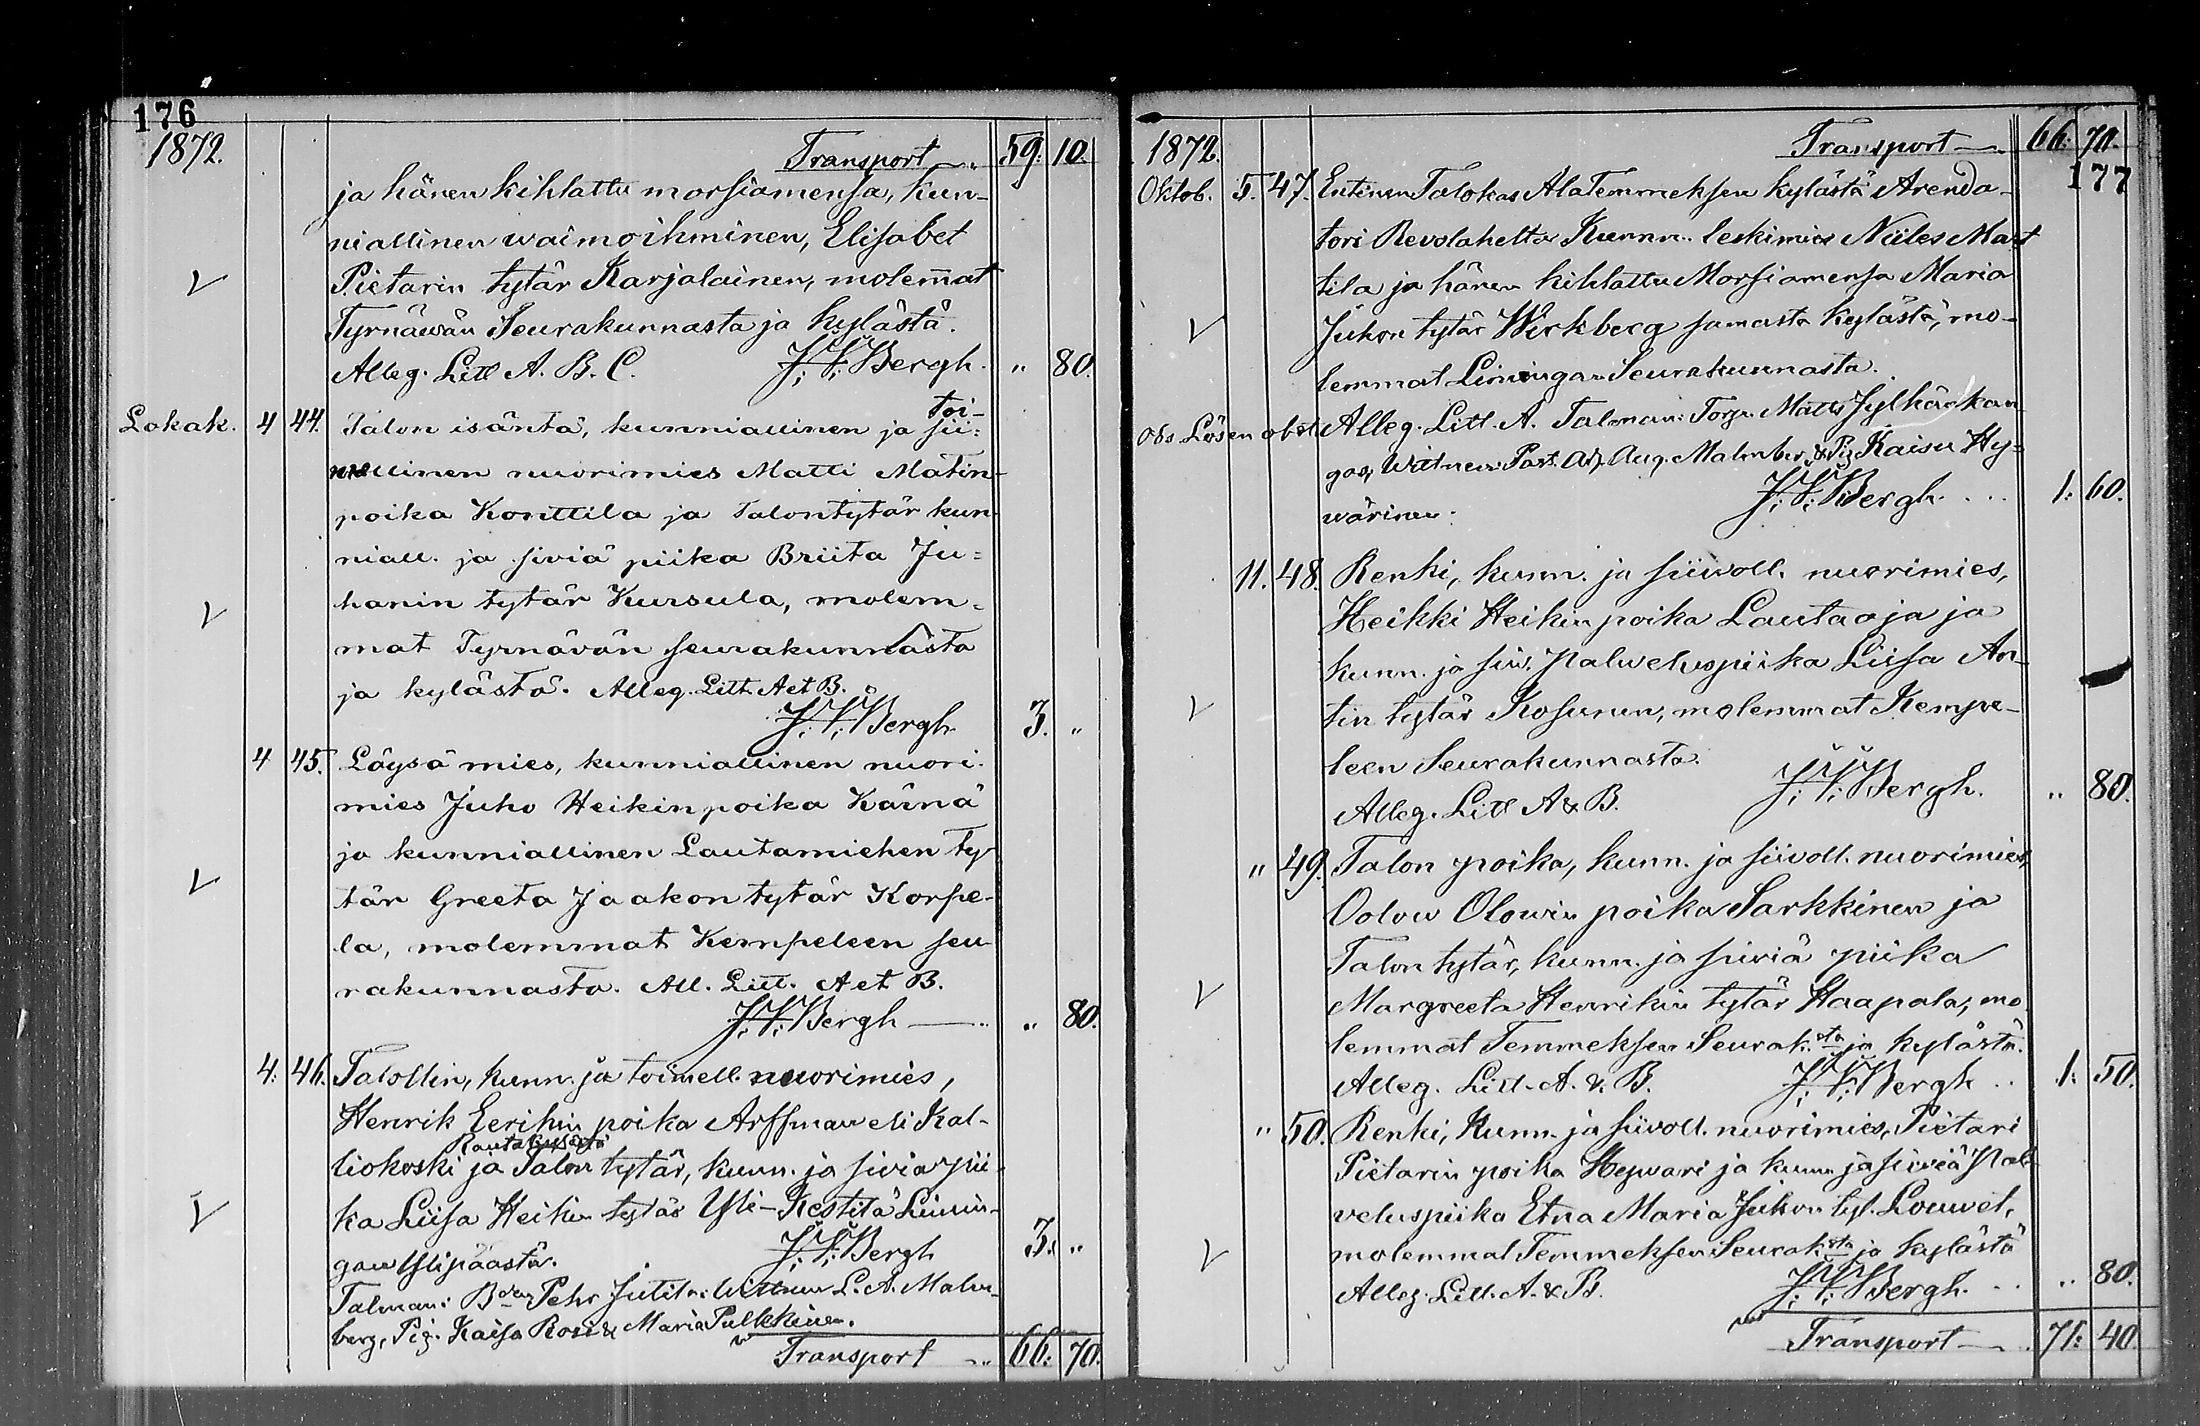 176
1872. Transport 59. 10.
ja hänen kihlattu morsiamensa, kun-
niallinen waimoihminen, Elisabet
Pietarin tytär Karjalainen, molem̄at
Tyrnäwän Seurakunnasta ja kylästä.
Alleg. Litt A. B. C. J. V. Bergh. " 80.
Lokak. 4 44. Talon isäntä, kunniallinen ja sii=
toi-
mellinen nuorimies Matti Matin-
poika Konttila ja Talontytär kun-
niall. ja siviä piika Briita Ju=
hanin tytär Kursula, molem-
mat Tyrnävän seurakunnasta
ja kylästä. Alleg. Litt. A et B.
J. V. Bergh 3. "
4 45. Löysä mies, kunniallinen nuori-
mies Juho Heikinpoika Kärnä
ja kunniallinen Lautamiehen ty-
tär Greeta Jaakon tytär Korpe-
la, molemmat Kempeleen seu-
rakunnasta. All. Litt. A et B.
J. V. Bergh " 80.
4. 46. Talollin, kunn. ja toimell. nuorimies,
Henrik Eerikin poika Arffman eli Kal-
Rantakylästä
liokoski ja Talon tytär, kunn. ja siviä pii-
ka Liisa Heikin tytär Yli-Kestilä Limin-
gan Ylipäästä. J. V. Bergh 3. "
Talman: Bden Pehr Jutila: Wittnen L. A. Malm-
berg, Pig. Kaisa Rosi & Maria Pulkkinen.
Transport 66. 70.
1872. Transport 66. 70.
177
Oktob. 5. 47. Entinen Talokas AlaTemmeksen kylästä Arenda-
tori Revolahelta Kunn. leskimies Niiles Mart
tila ja hänen kihlattu Morsiamensa Maria
Jukon tytär Werkberg samasta kylästä, mo-
lemmat Limingan Seurakunnasta.
Obs. Lösen obet. Alleg. Litt. A. Talman: Torp. Matts Jylhänkan-
gas, Wittnen Past. Adj. Aug. Malmberg & Pig Kaisu Hy-
wärinen. J. V. Bergh. 1. 60.
11. 48. Renki, kunn. ja siiwoll. nuorimies,
Heikki Heikin poika Lautaoja ja
kunn. ja siw. Palweluspiika Liisa An-
tin tytär Kosunen, molemmat Kempe-
leen Seurakunnasta.
Alleg. Litt A & B. J. V. Bergh. " 80.
" 49. Talon poika, kunn. ja siivoll. nuorimies,
Oolow Olowin poika Sarkkinen ja
Talon tytär, kunn. ja siviä piika
Margreeta Henrikin tytär Haapala, mo-
lemmat Temmeksen Seurak.sta ja kylästä.
Alleg. Litt. A. & B. J. V. Bergh 1. 50.
" 50. Renki, Kunn. ja siivoll. nuorimies, Pietari
Pietarin poika Hepwari ja kunn ja siwiä Pal-
veluspiika Etna Maria Jukon tyt. Louwet,
molemmat Temmeksen Seurak.sta ja kylästä
Alleg. Litt. A. & B. J. V. Bergh. " 80.
Transport 71. 40.